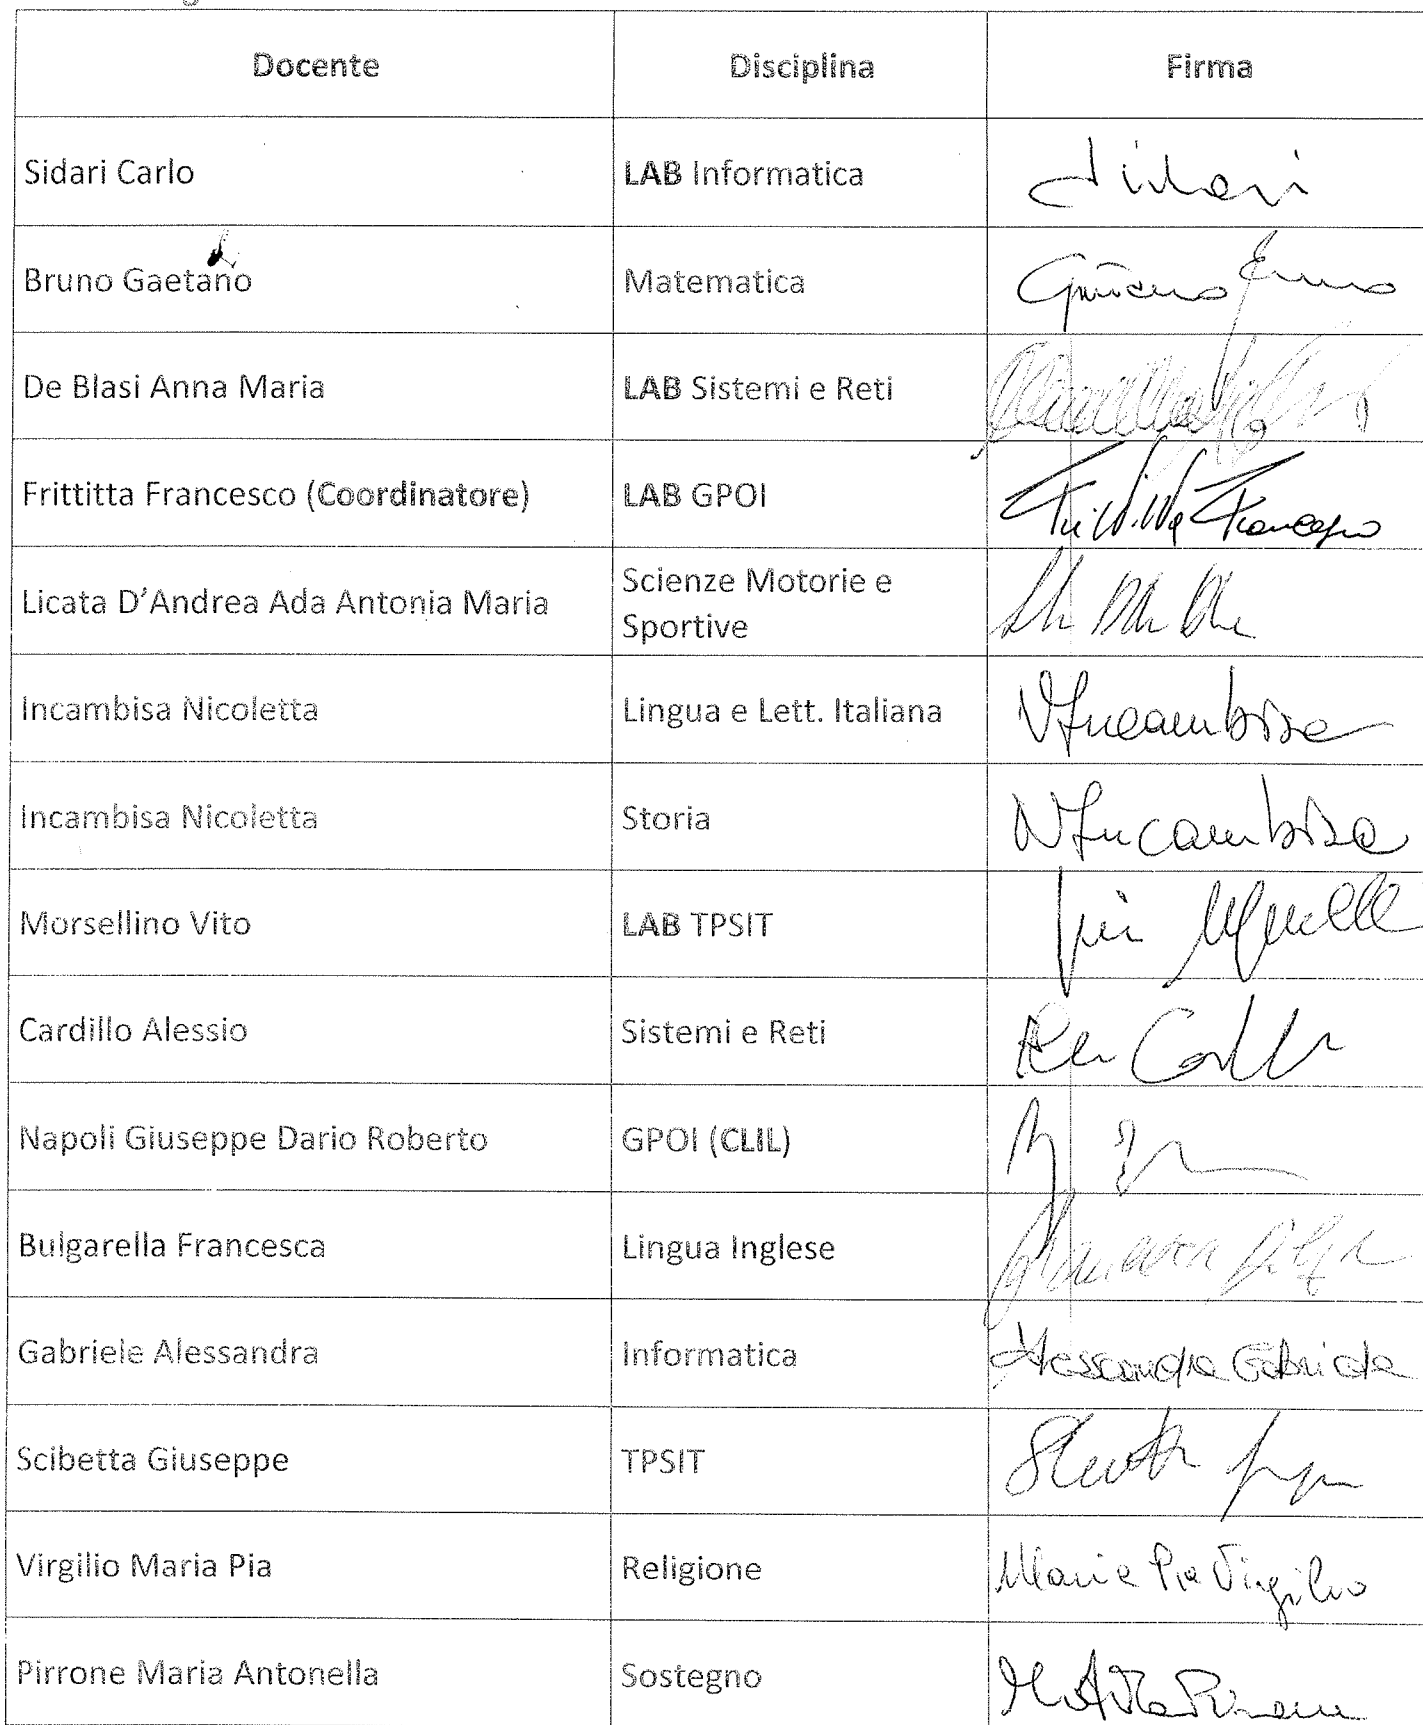 Docente Disciplina Firma
Sidari Carlo LAB Informatica Sidari
Bruno Gaetano Matematica Gaetano Bruno
De Blasi Anna Maria LAB Sistemi e Reti
Frittitta Francesco (Coordinatore) LAB GPOI Frittitta Francesco
Licata D'Andrea Ada Antonia Maria Scienze Motorie e
Sportive
Incambisa Nicoletta Lingua e Lett. Italiana NIncambisa
Incambisa Nicoletta Storia NIncambisa
Morsellino Vito LAB TPSIT
Cardillo Alessio Sistemi e Reti
Napoli Giuseppe Dario Roberto GPOI (CLIL)
Bulgarella Francesca Lingua Inglese
Gabriele Alessandra Informatica Alessandra Gabriele
Scibetta Giuseppe TPSIT
Virgilio Maria Pia Religione Maria Pia Virgilio
Pirrone Maria Antonella Sostegno